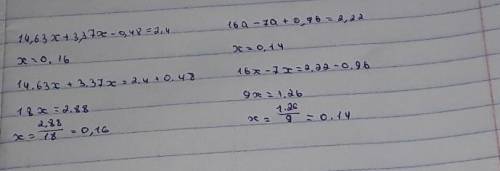 14,63x+3,37x-0,48=2,4
x=0,16
14.63x+3.37x=2.4+0.48
18x=2.88
x=2,88/18=0,16
16a-7a+0,96=2,22
x=0,14
16x-7x=2,22-0.96
9x=1.26
x=1.26/9=0.14